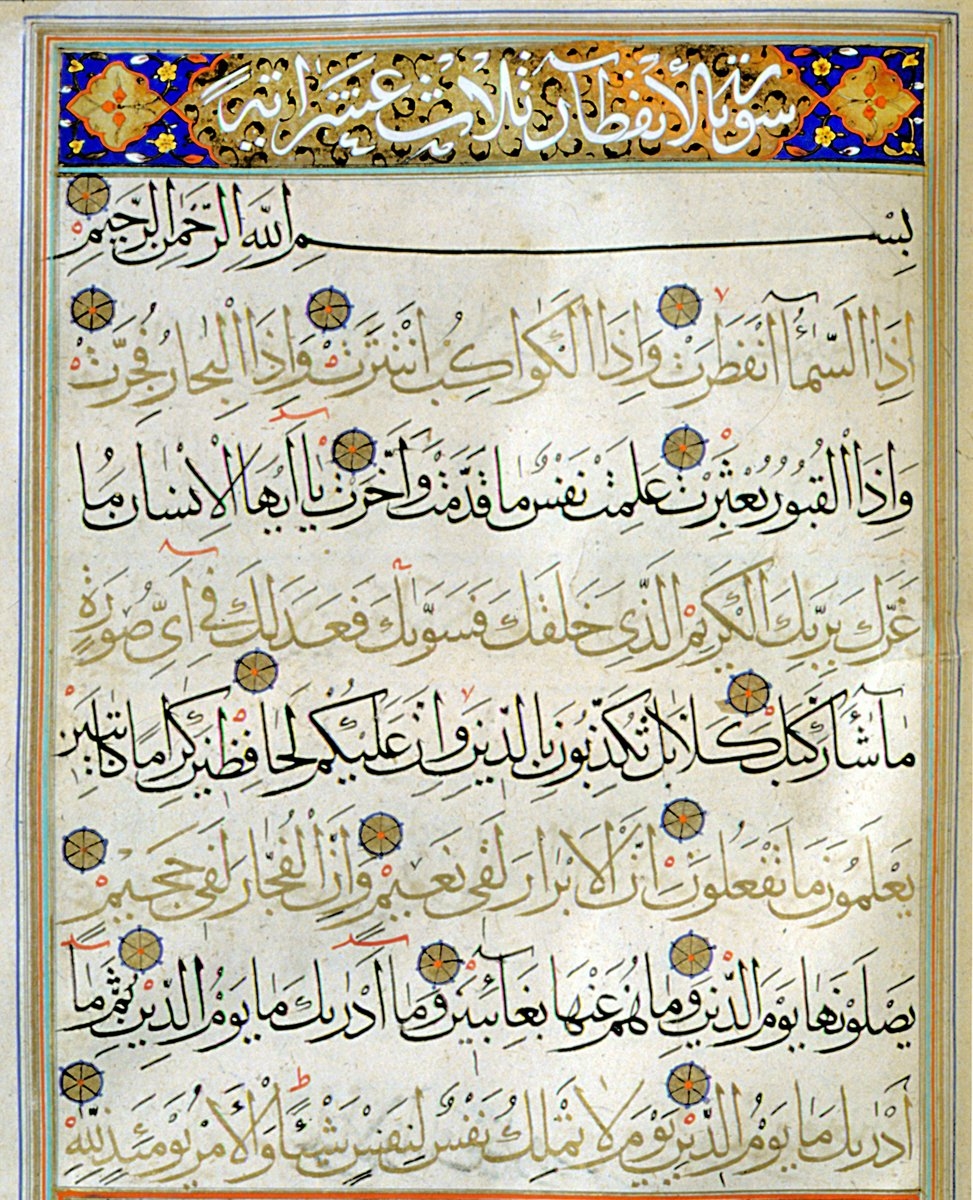 سورة الانفطار ثلاث عشر اية
بِسْمِ اللَّهِ الرَّحْمٰنِ الرَّحِيمِ
اِذَا السَّمَاءُ انْفَطَرَتْ وَاِذَا الْكَوَاكِبُ انْتَثَرَتْ وَاِذَا الْبِحَارُ فُجِّرَتْ
وَاِذَا الْقُبُورُ بُعْثِرَتْ عَلِمَتْ نَفْسٌ مَا قَدَّمَتْ وَاَخَّرَتْ يَا اَيُّهَا الْاِنْسَانُ مَا
غَرَّكَ بِرَبِّكَ الْكَرِيمِ الَّذِي خَلَقَكَ فَسَوّٰيكَ فَعَدَلَكَ فِي اَيِّ صُورَةٍ
مَا شَاءَ رَكَّبَكَ كَلَّا بَلْ تُكَذِّبُونَ بِالدِّينِ وَاِنَّ عَلَيْكُمْ لَحَافِظِينَ كِرَامًا كَاتِبِينَ
يَعْلَمُونَ مَا تَفْعَلُونَ اِنَّ الْاَبْرَارَ لَفِي نَعِيمٍ وَاِنَّ الْفُجَّارَ لَفِي جَحِيمٍ
يَصْلَوْنَهَا يَوْمَ الدِّينِ وَمَا هُمْ عَنْهَا بِغَائِبِينَ وَمَا اَدْرٰيكَ مَا يَوْمُ الدِّينِ ثُمَّ مَا
اَدْرٰيكَ مَا يَوْمُ الدِّينِ يَوْمَ لَا تَمْلِكُ نَفْسٌ لِنَفْسٍ شَيْئًا وَالْاَمْرُ يَوْمَئِذٍ لِلّٰهِ